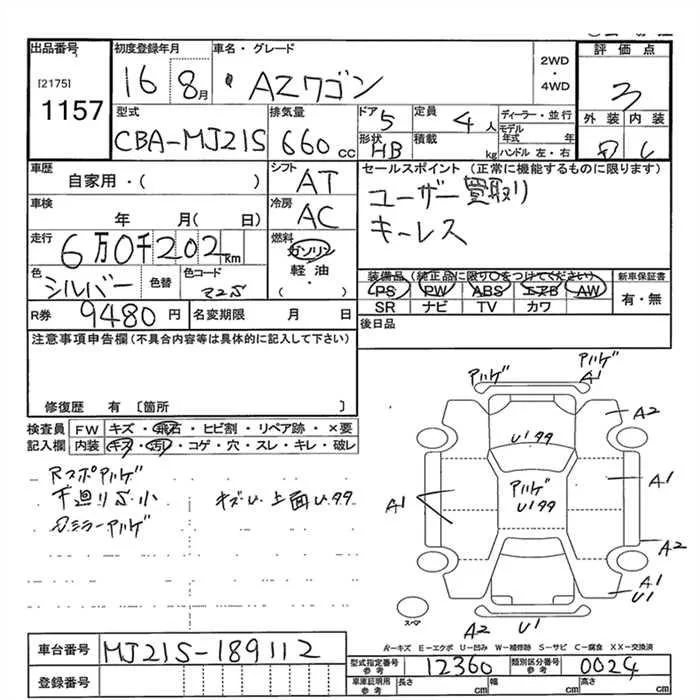 出品番号 初度登録年月 車名・グレード 評価点
[2175] 16 8月 AZワゴン 2WD・4WD 3
1157
型式 排気量 ドア 定員 ディーラー・並行 外装 内装
CBA-MJ21S 660cc 5 4人 モデル年式 年
形状 HB 積載 kg ハンドル 左・右
車歴 シフト セールスポイント (正常に機能するものに限ります)
自家用・( ) AT ユーザー買取り
車検 冷房 キーレス
年 月( 日) AC
走行 燃料
6万0千202km ガソリン
色 色替 色コード 軽油 装備品(純正品に限り○をつけてください) 新車保証書
シルバー Z2S ・( ) PS PW ABS エアB AW 有・無
SR ナビ TV カワ
R券 9480円 名変期限 月 日 後日品
注意事項申告欄(不具合内容等は具体的に記入して下さい)
修復歴 有 [箇所 ]
検査員 FW キズ・飛石・ヒビ割・リペア跡・×要
記入欄 内装 キズ・汚レ・コゲ・穴・スレ・キレ・破レ
Rスポアハゲ
下廻りS小 キズU 上面Uタタ
ミラーアハゲ
アハゲ
アハゲ
A1
A2
Uタタ
アハゲ
Uタタ
A1
A1
A2
A1
U1
スペア
A2 U1
R−キズ E−エクボ U−凹み W−補修跡 S−サビ C−腐食 XX−交換済
車台番号 MJ21S-189112 型式指定番号 参考 12360 類別区分番号 参考 0024
登録番号 車庫証明用 参考 長さ cm 幅 cm 高さ cm